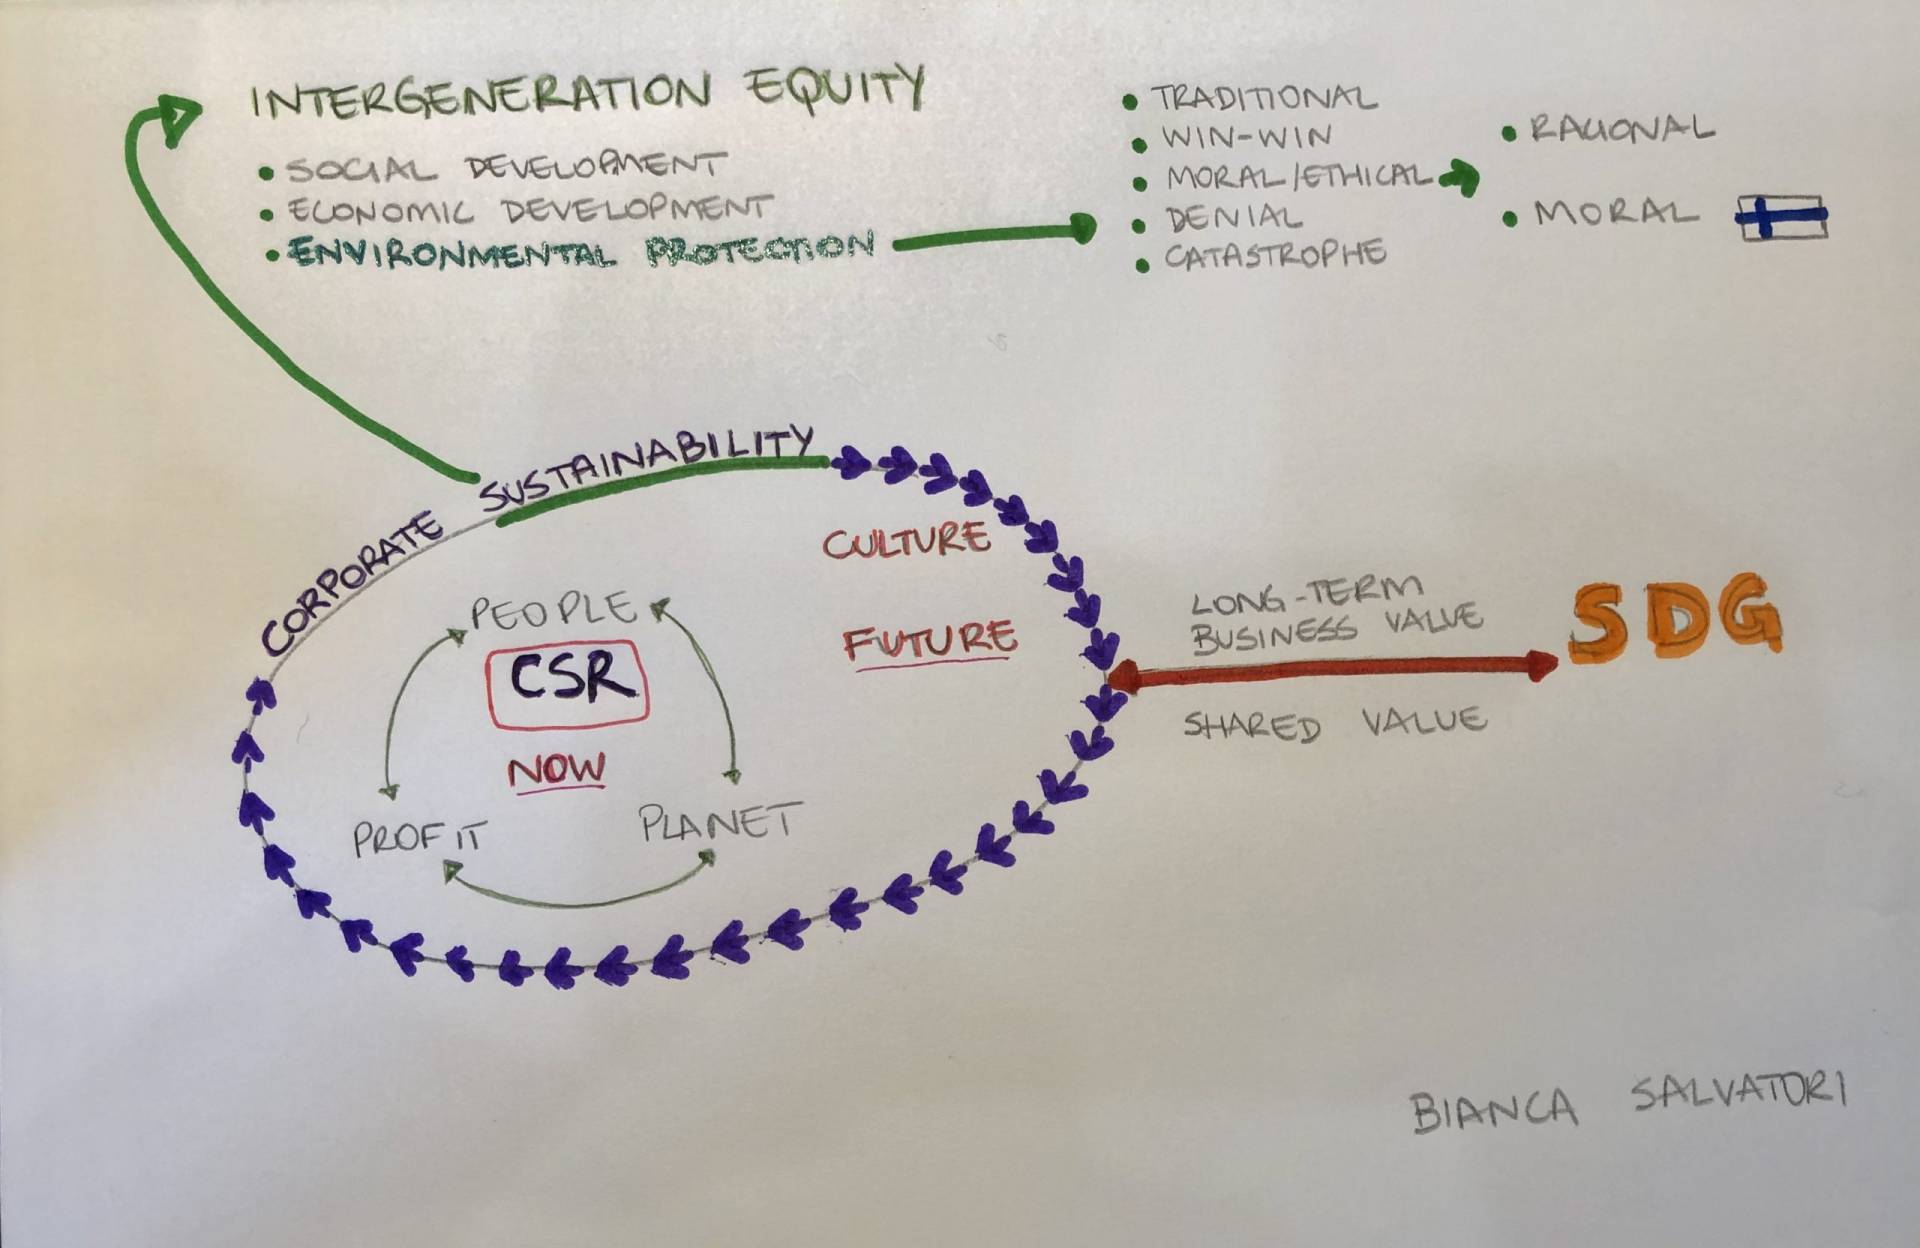 INTERGENERATION EQUITY
• SOCIAL DEVELOPMENT
• ECONOMIC DEVELOPMENT
• ENVIRONMENTAL PROTECTION
• TRADITIONAL
• WIN-WIN
• MORAL/ETHICAL
• DENIAL
• CATASTROPHE
• RATIONAL
• MORAL
CORPORATE SUSTAINABILITY
CULTURE
FUTURE
PEOPLE
CSR
NOW
PROFIT
PLANET
LONG-TERM
BUSINESS VALUE
SHARED VALUE
SDG
BIANCA SALVATORI